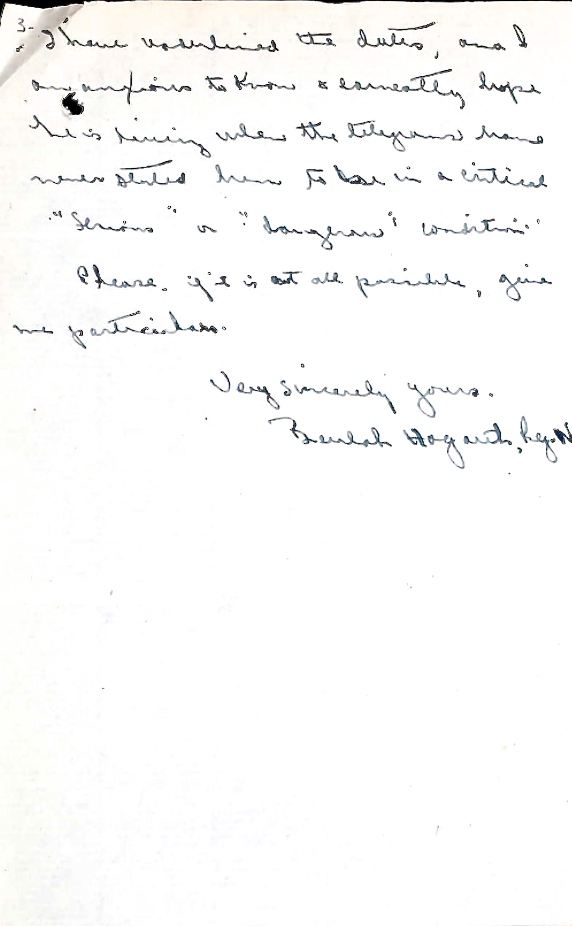 3-
I have underlined the dates, and I
am anxious to know & earnestly hope
he is living when the telegrams have
never stated him to be in a critical
"Serious" or "dangerous" condition."
Please, if it is at all possible, give
me particulars.
Very sincerely yours.
Beulah Hogarth, Rg.N